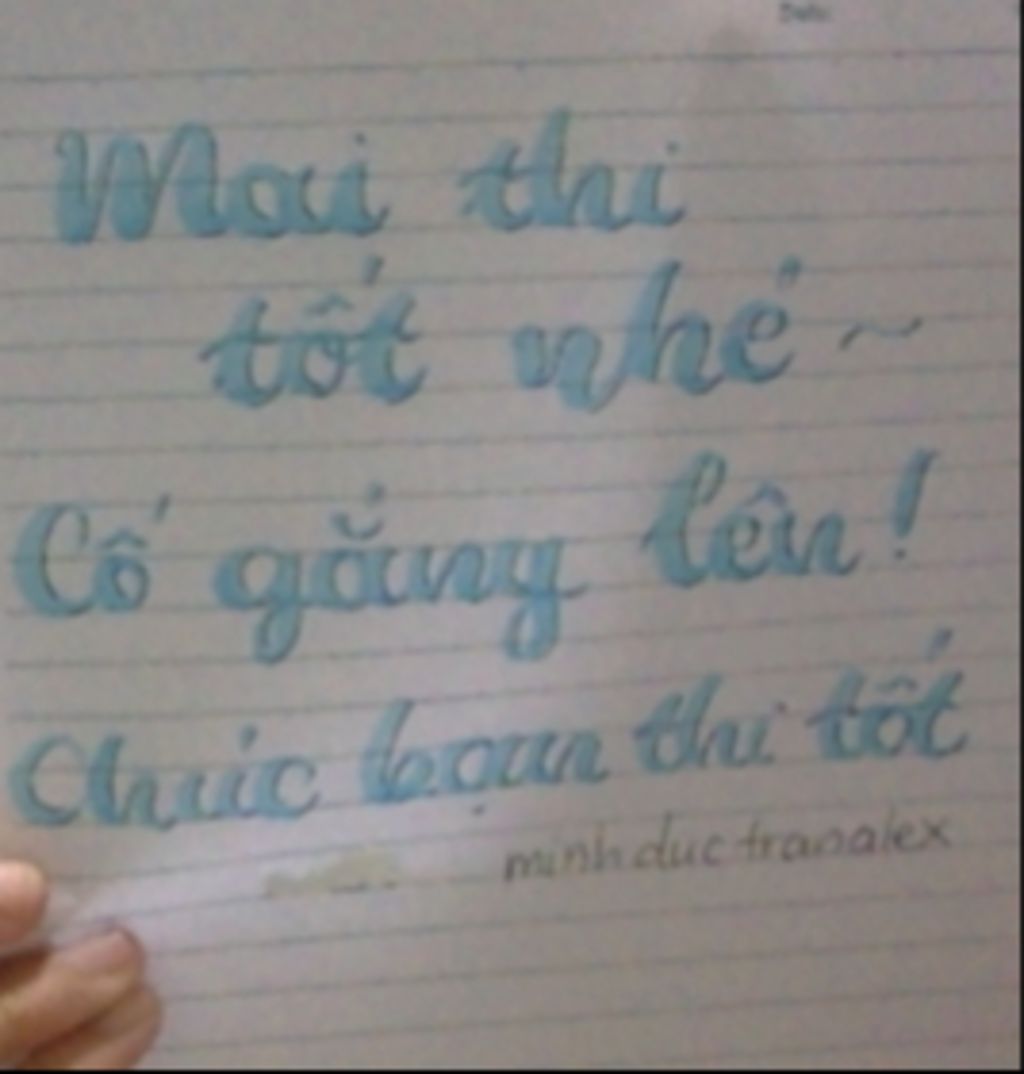 Mai thi
tốt nhé ~
Cố gắng lên!
Chúc bạn thi tốt
minhductranalex